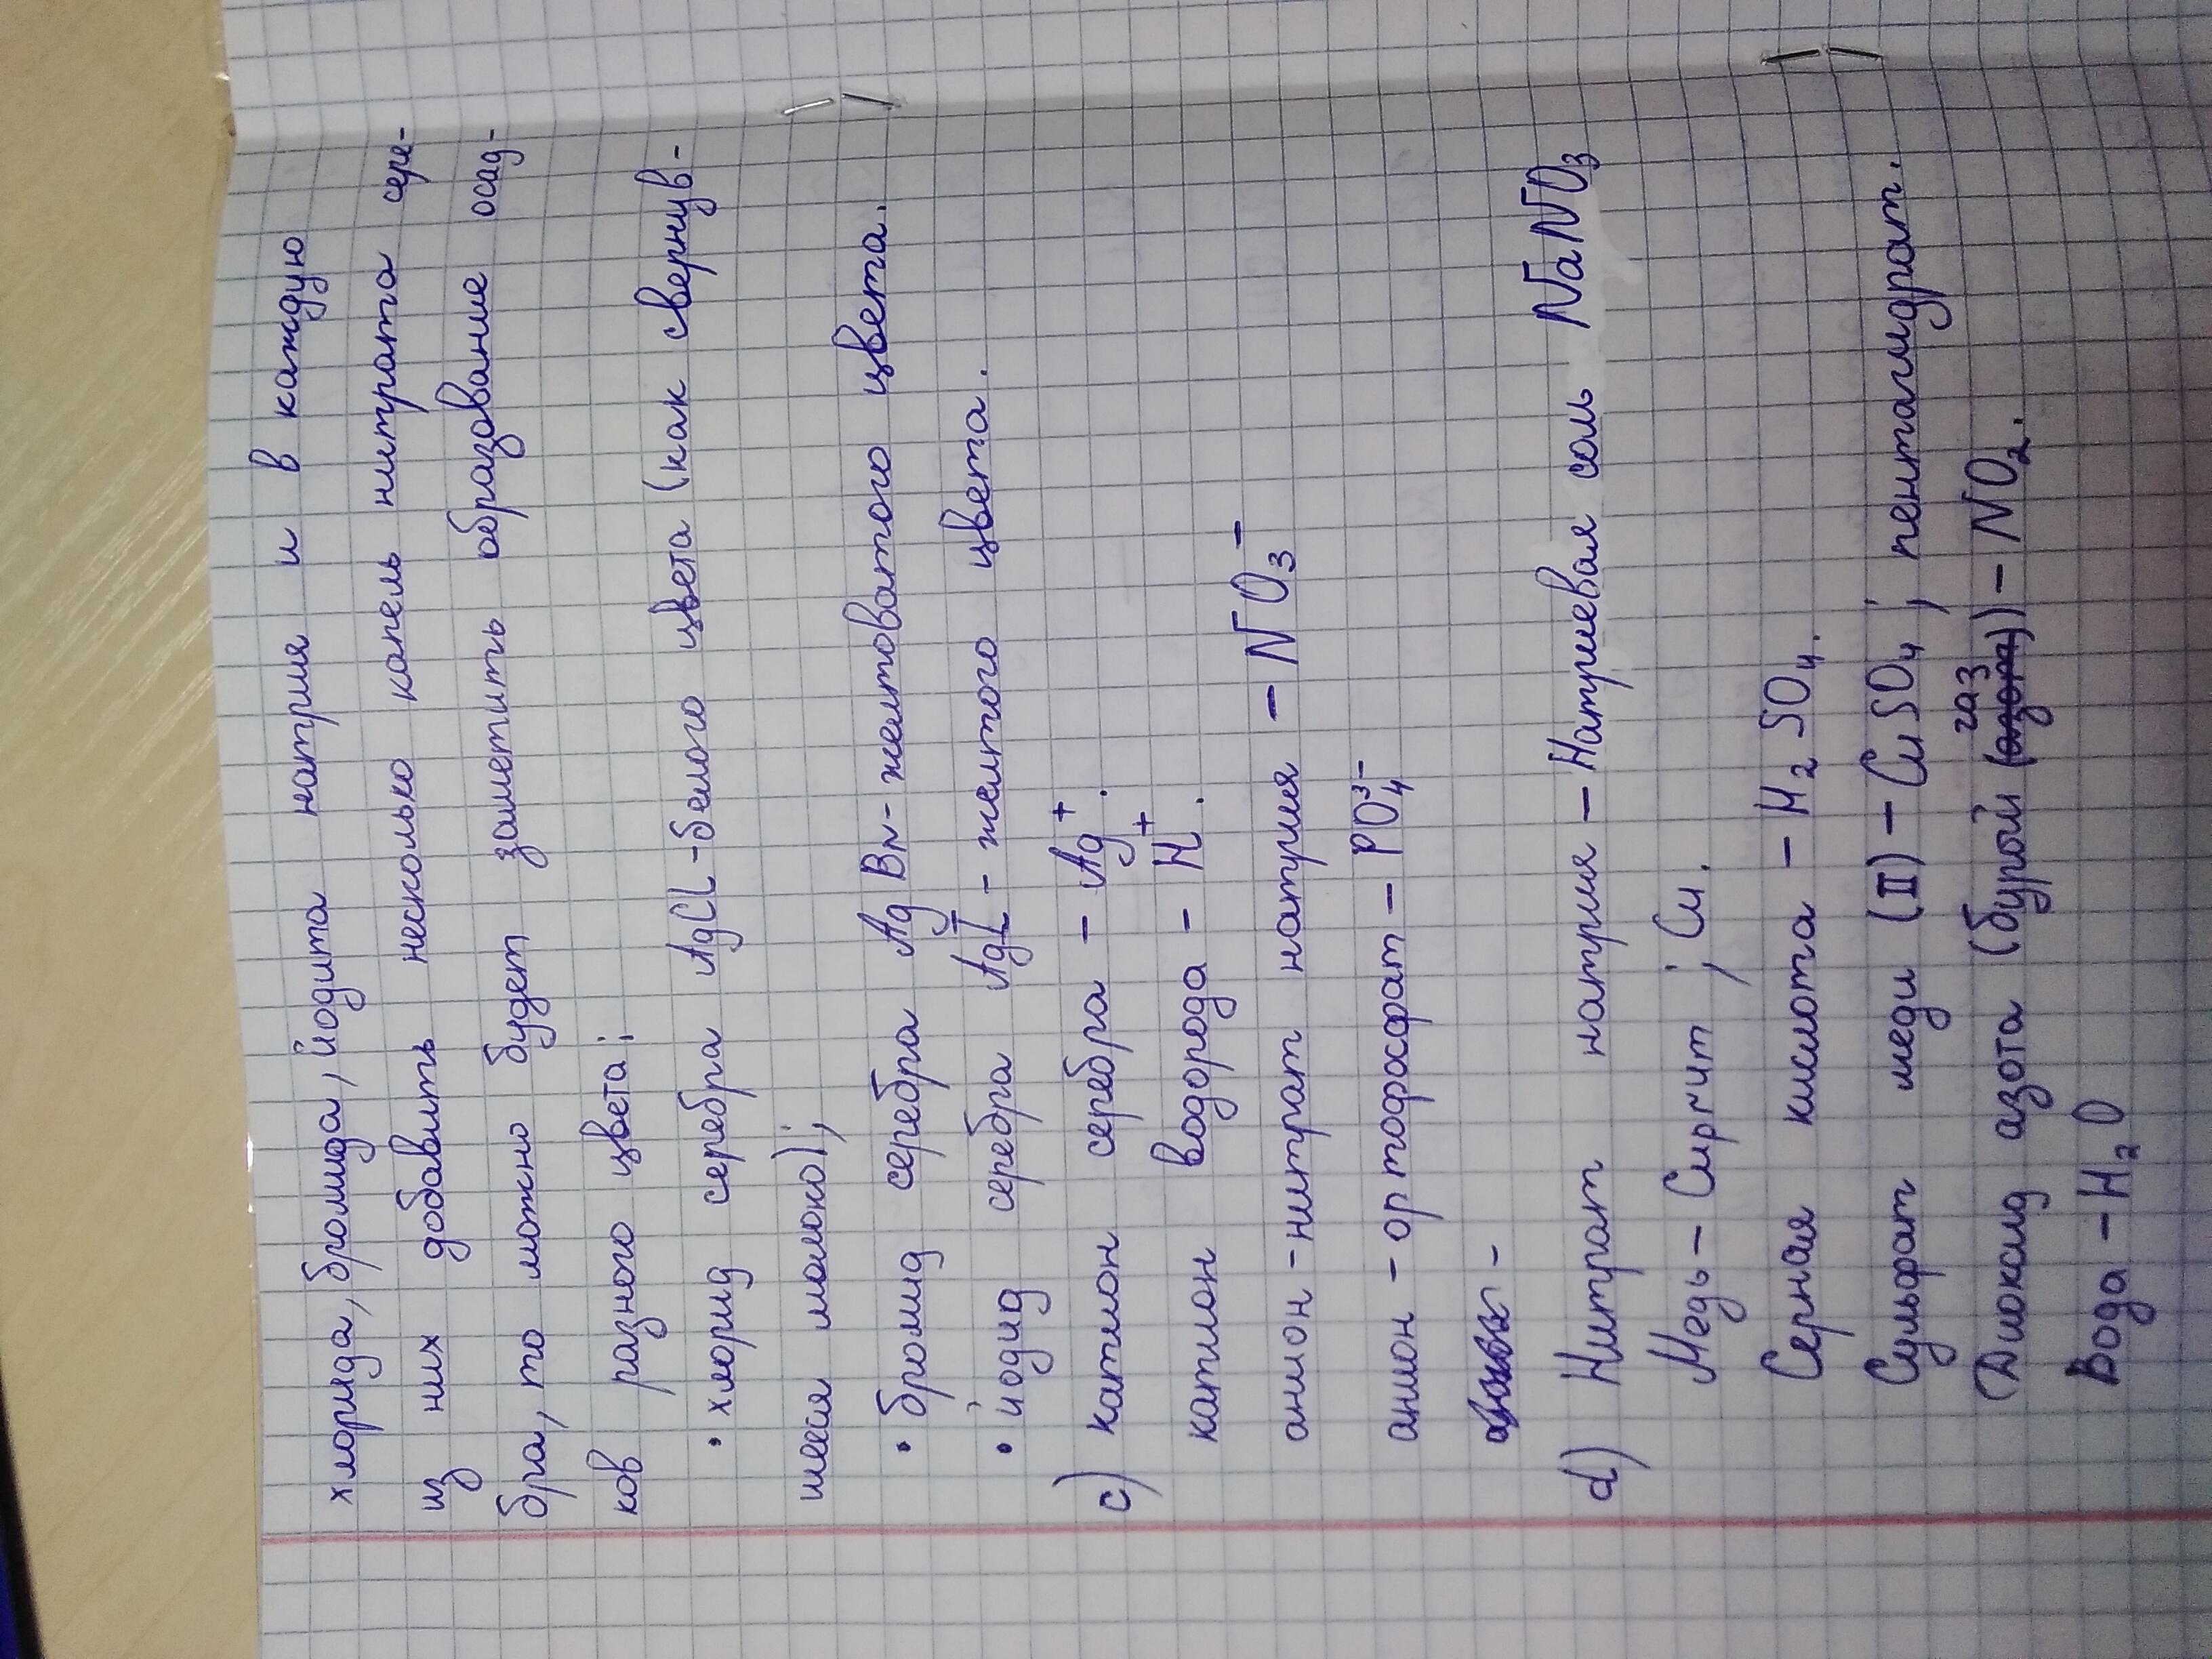 хлорида, бромида, йодита натрия и в каждую
из них добавить несколько капель нитрата сере-
бра, то можно будет заметить образование осад-
ков разного цвета;
• хлорид серебра AgCl - белого цвета (как свернув-
шееся молоко);
• бромид серебра AgBr - желтоватого цвета.
• йодид серебра AgI - желтого цвета.
c) катион серебра - Ag⁺.
катион водорода - H⁺.
анион - нитрат натрия - NO₃⁻
анион - ортофосфат - PO₄³⁻
d) Нитрат натрия - Натриевая соль NaNO₃
Медь - ; Cu.
Серная кислота - H₂SO₄.
Сульфат меди (II) - CuSO₄; пентагидрат.
Диоксид азота (бурый газ) - NO₂.
Вода - H₂O